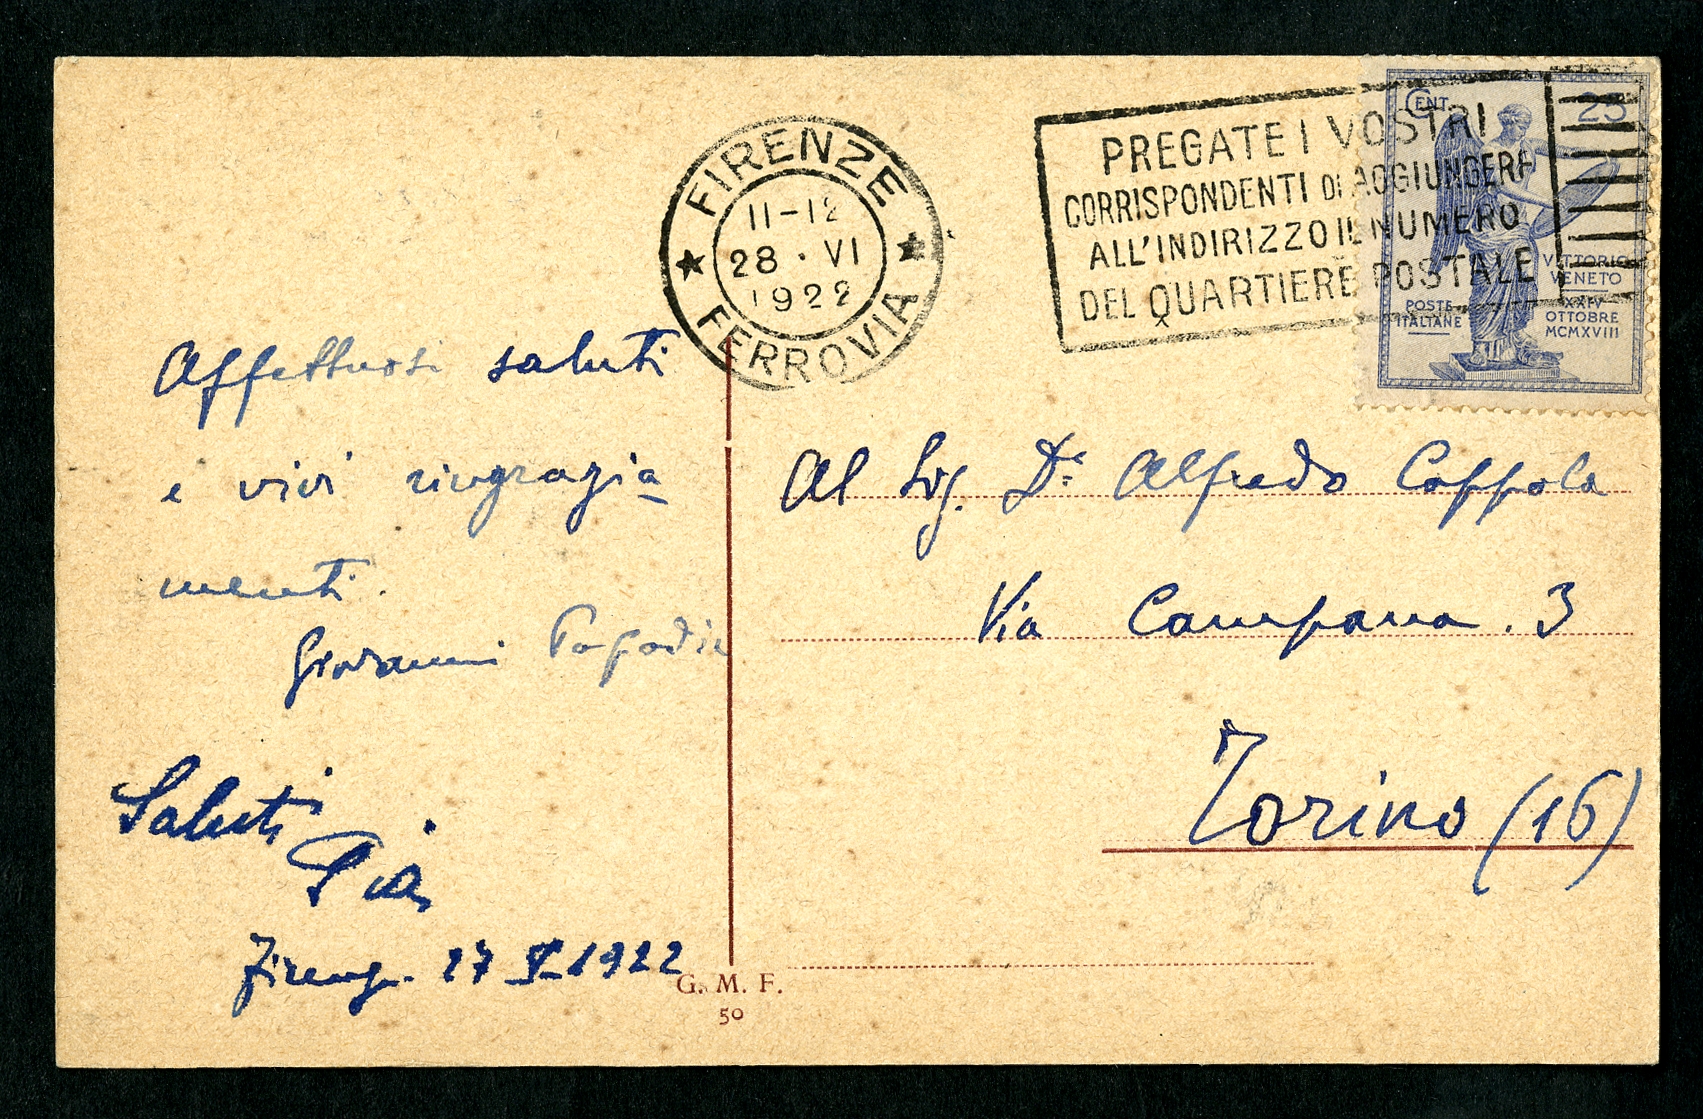 FIRENZE
11-12
28 · VI
1922
FERROVIA
PREGATE I VOSTRI
CORRISPONDENTI DI AGGIUNGERE
ALL'INDIRIZZO IL NUMERO
DEL QUARTIERE POSTALE
CENT. 25
VITTORIO
VENETO
XXIV
OTTOBRE
MCMXVIII
POSTE
ITALIANE
Affettuosi saluti
e vivi ringrazia
menti.
Giovanni
Saluti
Pia
Firenze. 27 1922
Al Sig. Dr Alfredo Coppola
Via Campana. 3
Torino (16)
G. M. F.
50